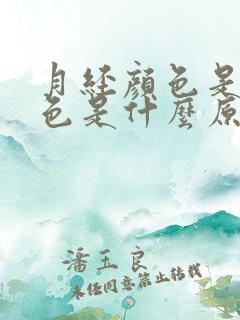 月经颜色是
色是什麼原
潘玉良
未经同意禁止转载